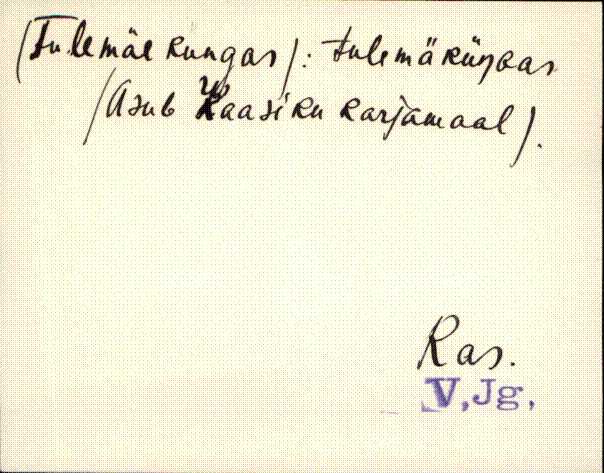 (Tulemäe kungas): tulemäküŋgas
(Asub Raasiku karjamaal).
Ras.
V,Jg,